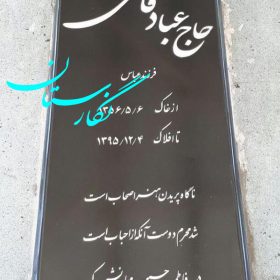 حاج عباد
فرزند عباس
از خاک ۱۳۵۶/۵/۶
تا افلاک ۱۳۹۵/۱۲/۴
ناگاه پریدن هنر اصحاب است
شد محرم دوست آنکه از احباب است
نگارستان